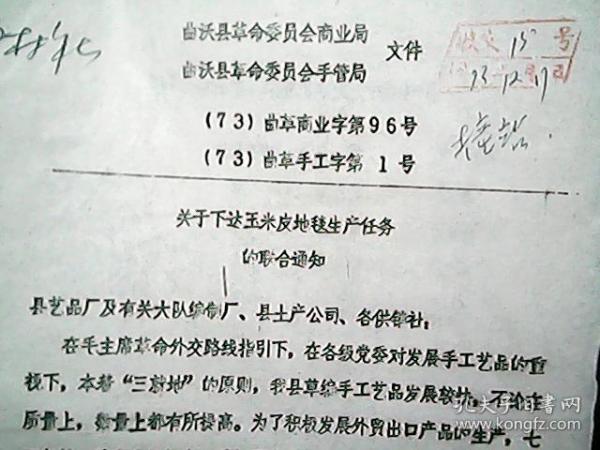 曲沃县革命委员会商业局
曲沃县革命委员会手管局
文件
收文 15 号
73 12 17
(73)曲革商业字第96号
(73)曲革手工字第 1号
关于下达玉米皮地毯生产任务
的联合通知
县艺品厂及有关大队编制厂、县土产公司、各供销社:
在毛主席革命外交路线指引下,在各级党委对发展手工艺品的重
视下,本着“三就地”的原则,我县草编手工艺品发展较快。不论在
质量上,数量上都有所提高。为了积极发展外贸出口产品的生产,七
孔夫子旧书网
www.kongfz.com